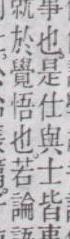 事也是仕與士皆事
就於覺悟也若論語